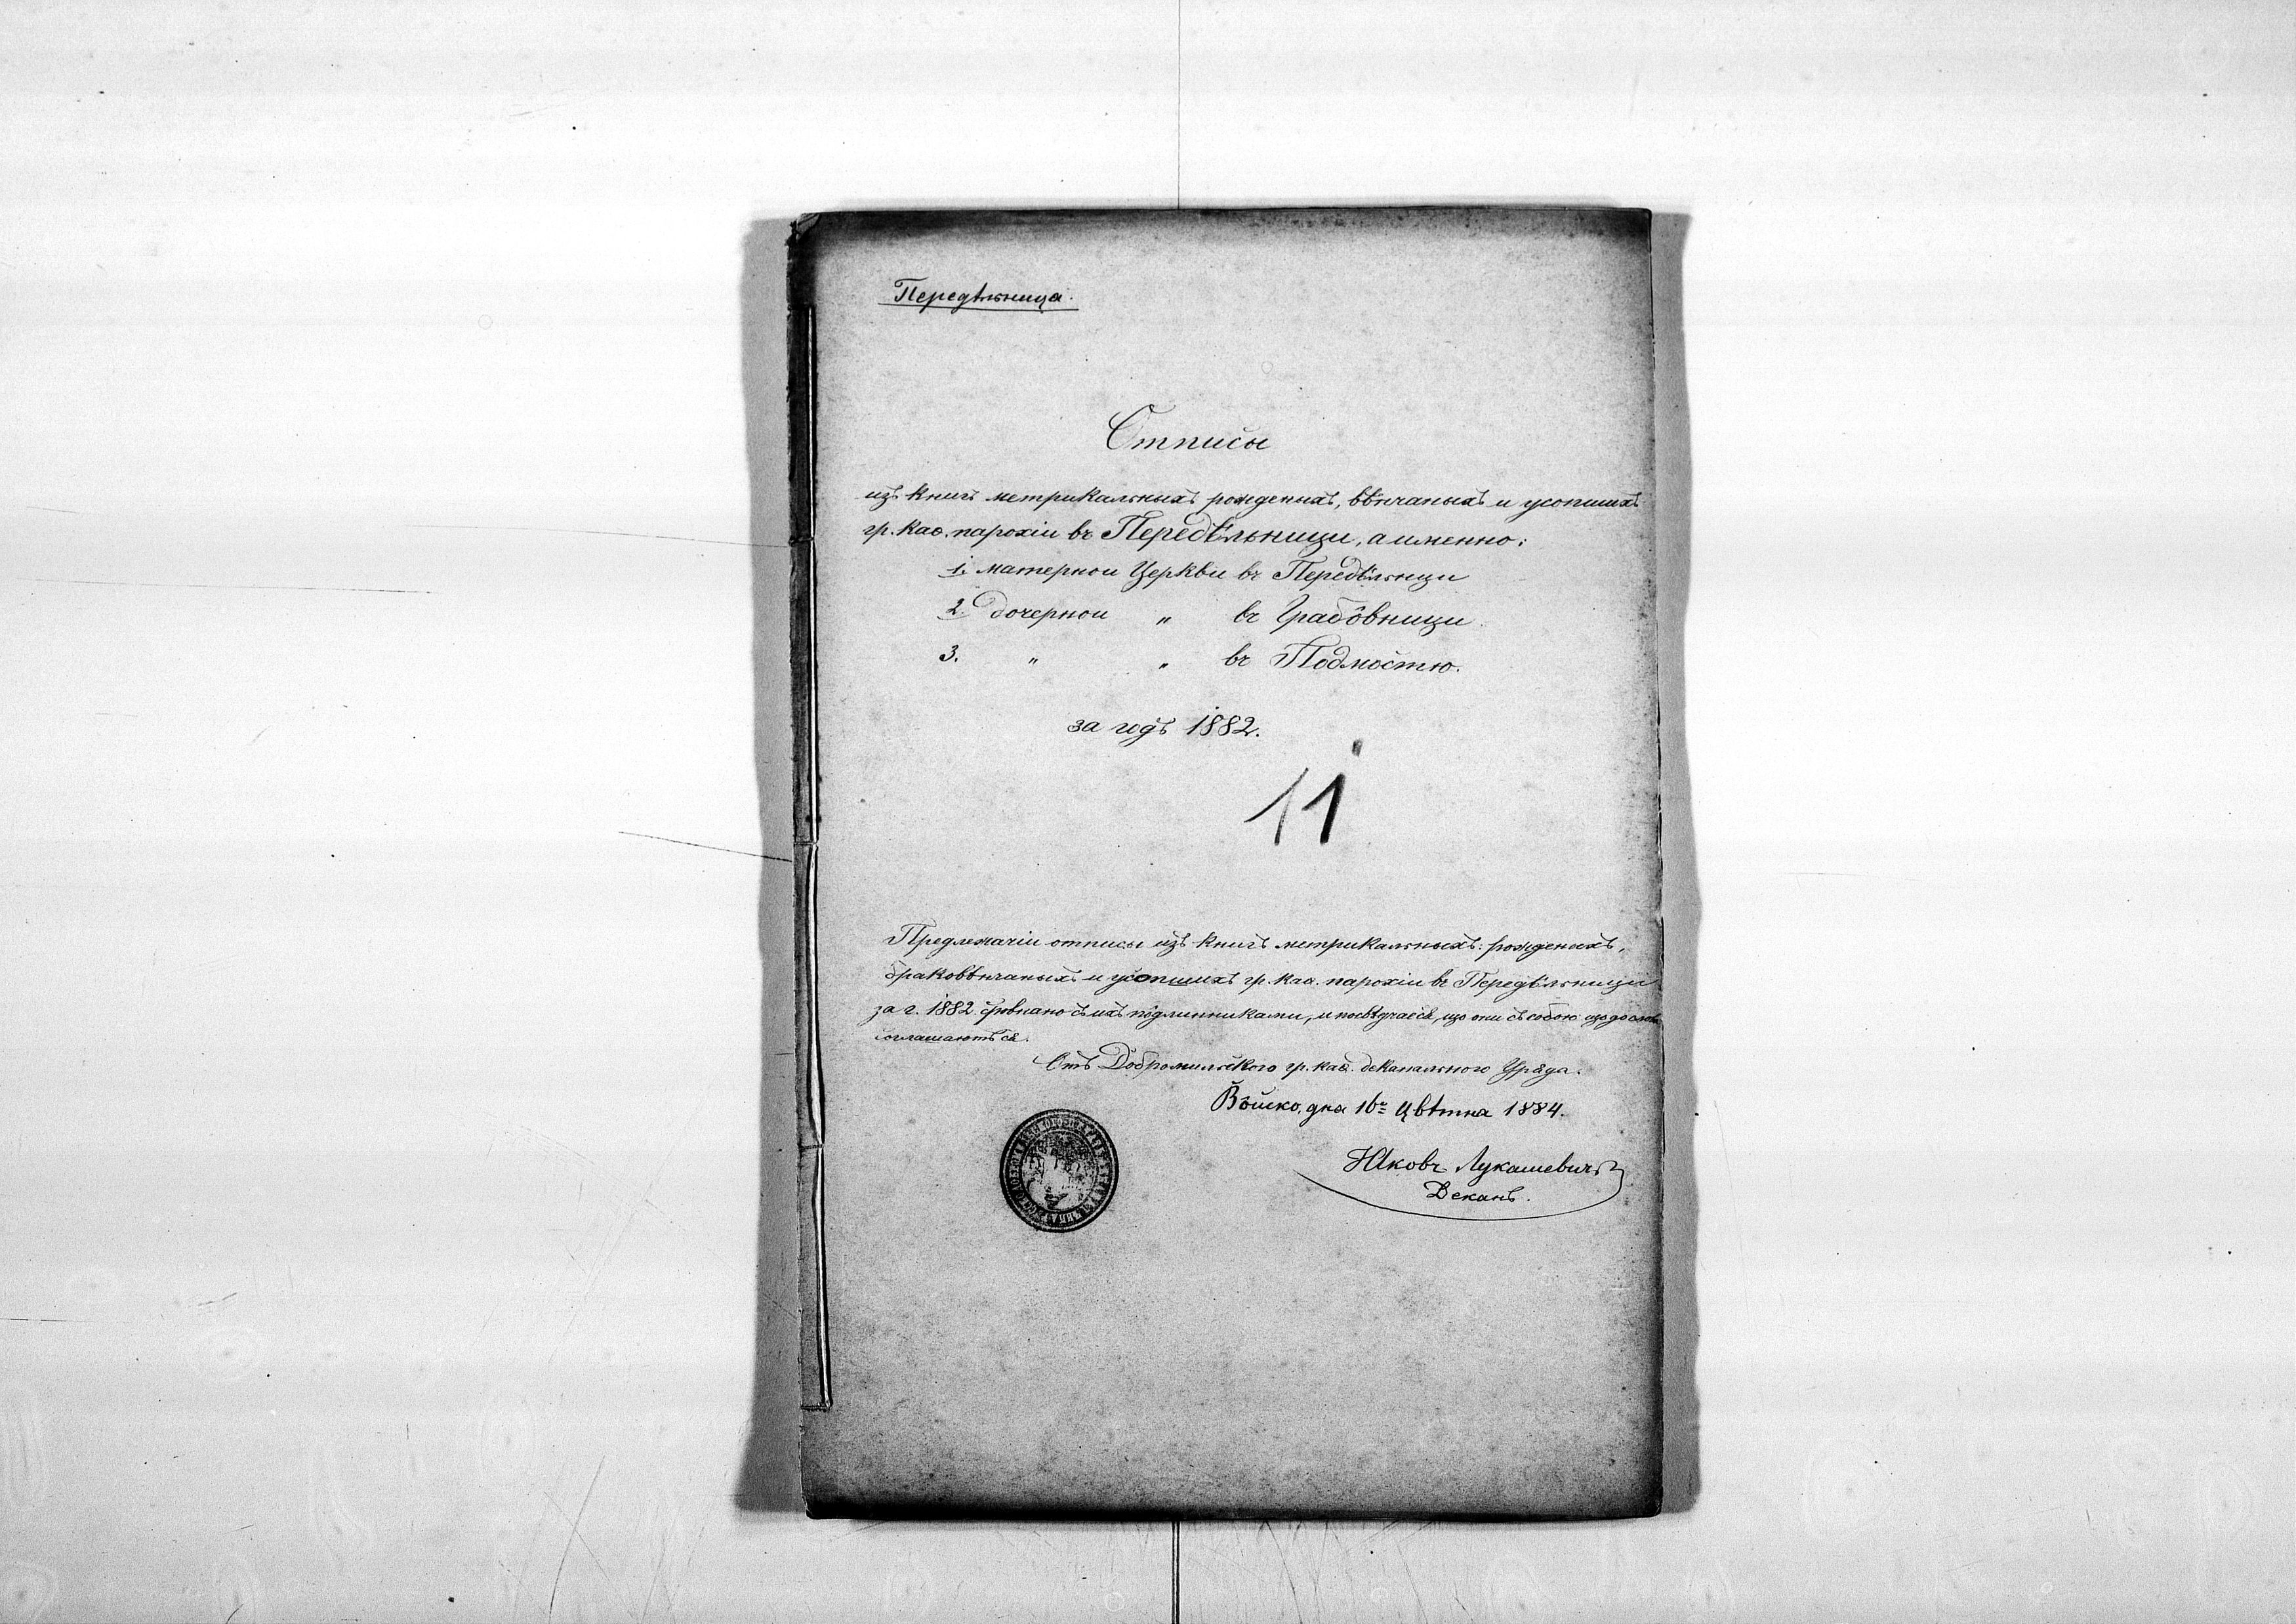 Передѣльница.
Отписы
изъ книгъ метрикальныхъ рожденыхъ, вѣнчаныхъ и усопшихъ
гр. каѳ. парохіи въ Передѣльници, а именно:
1. матерной Церкви въ Передѣльници
2. дочерной " въ Грабôвници
3. " " въ Подмостю.
за годъ 1882.
11
Предлежачіи отписы изъ книгъ метрикальныхъ: рожденыхъ,
браковѣнчаныхъ и усопшихъ гр. каѳ. парохіи въ Передѣльници
за г. 1882 съ ихъ подлинниками, и посвѣдчаеся, що они съ собою що до слова
соглашаютъ ся.
Отъ Добромильского гр. каѳ. деканального Уряда.
Вôйско, дна 16го Цвѣтна 1884.
Яковъ Лукашевичъ
Деканъ.